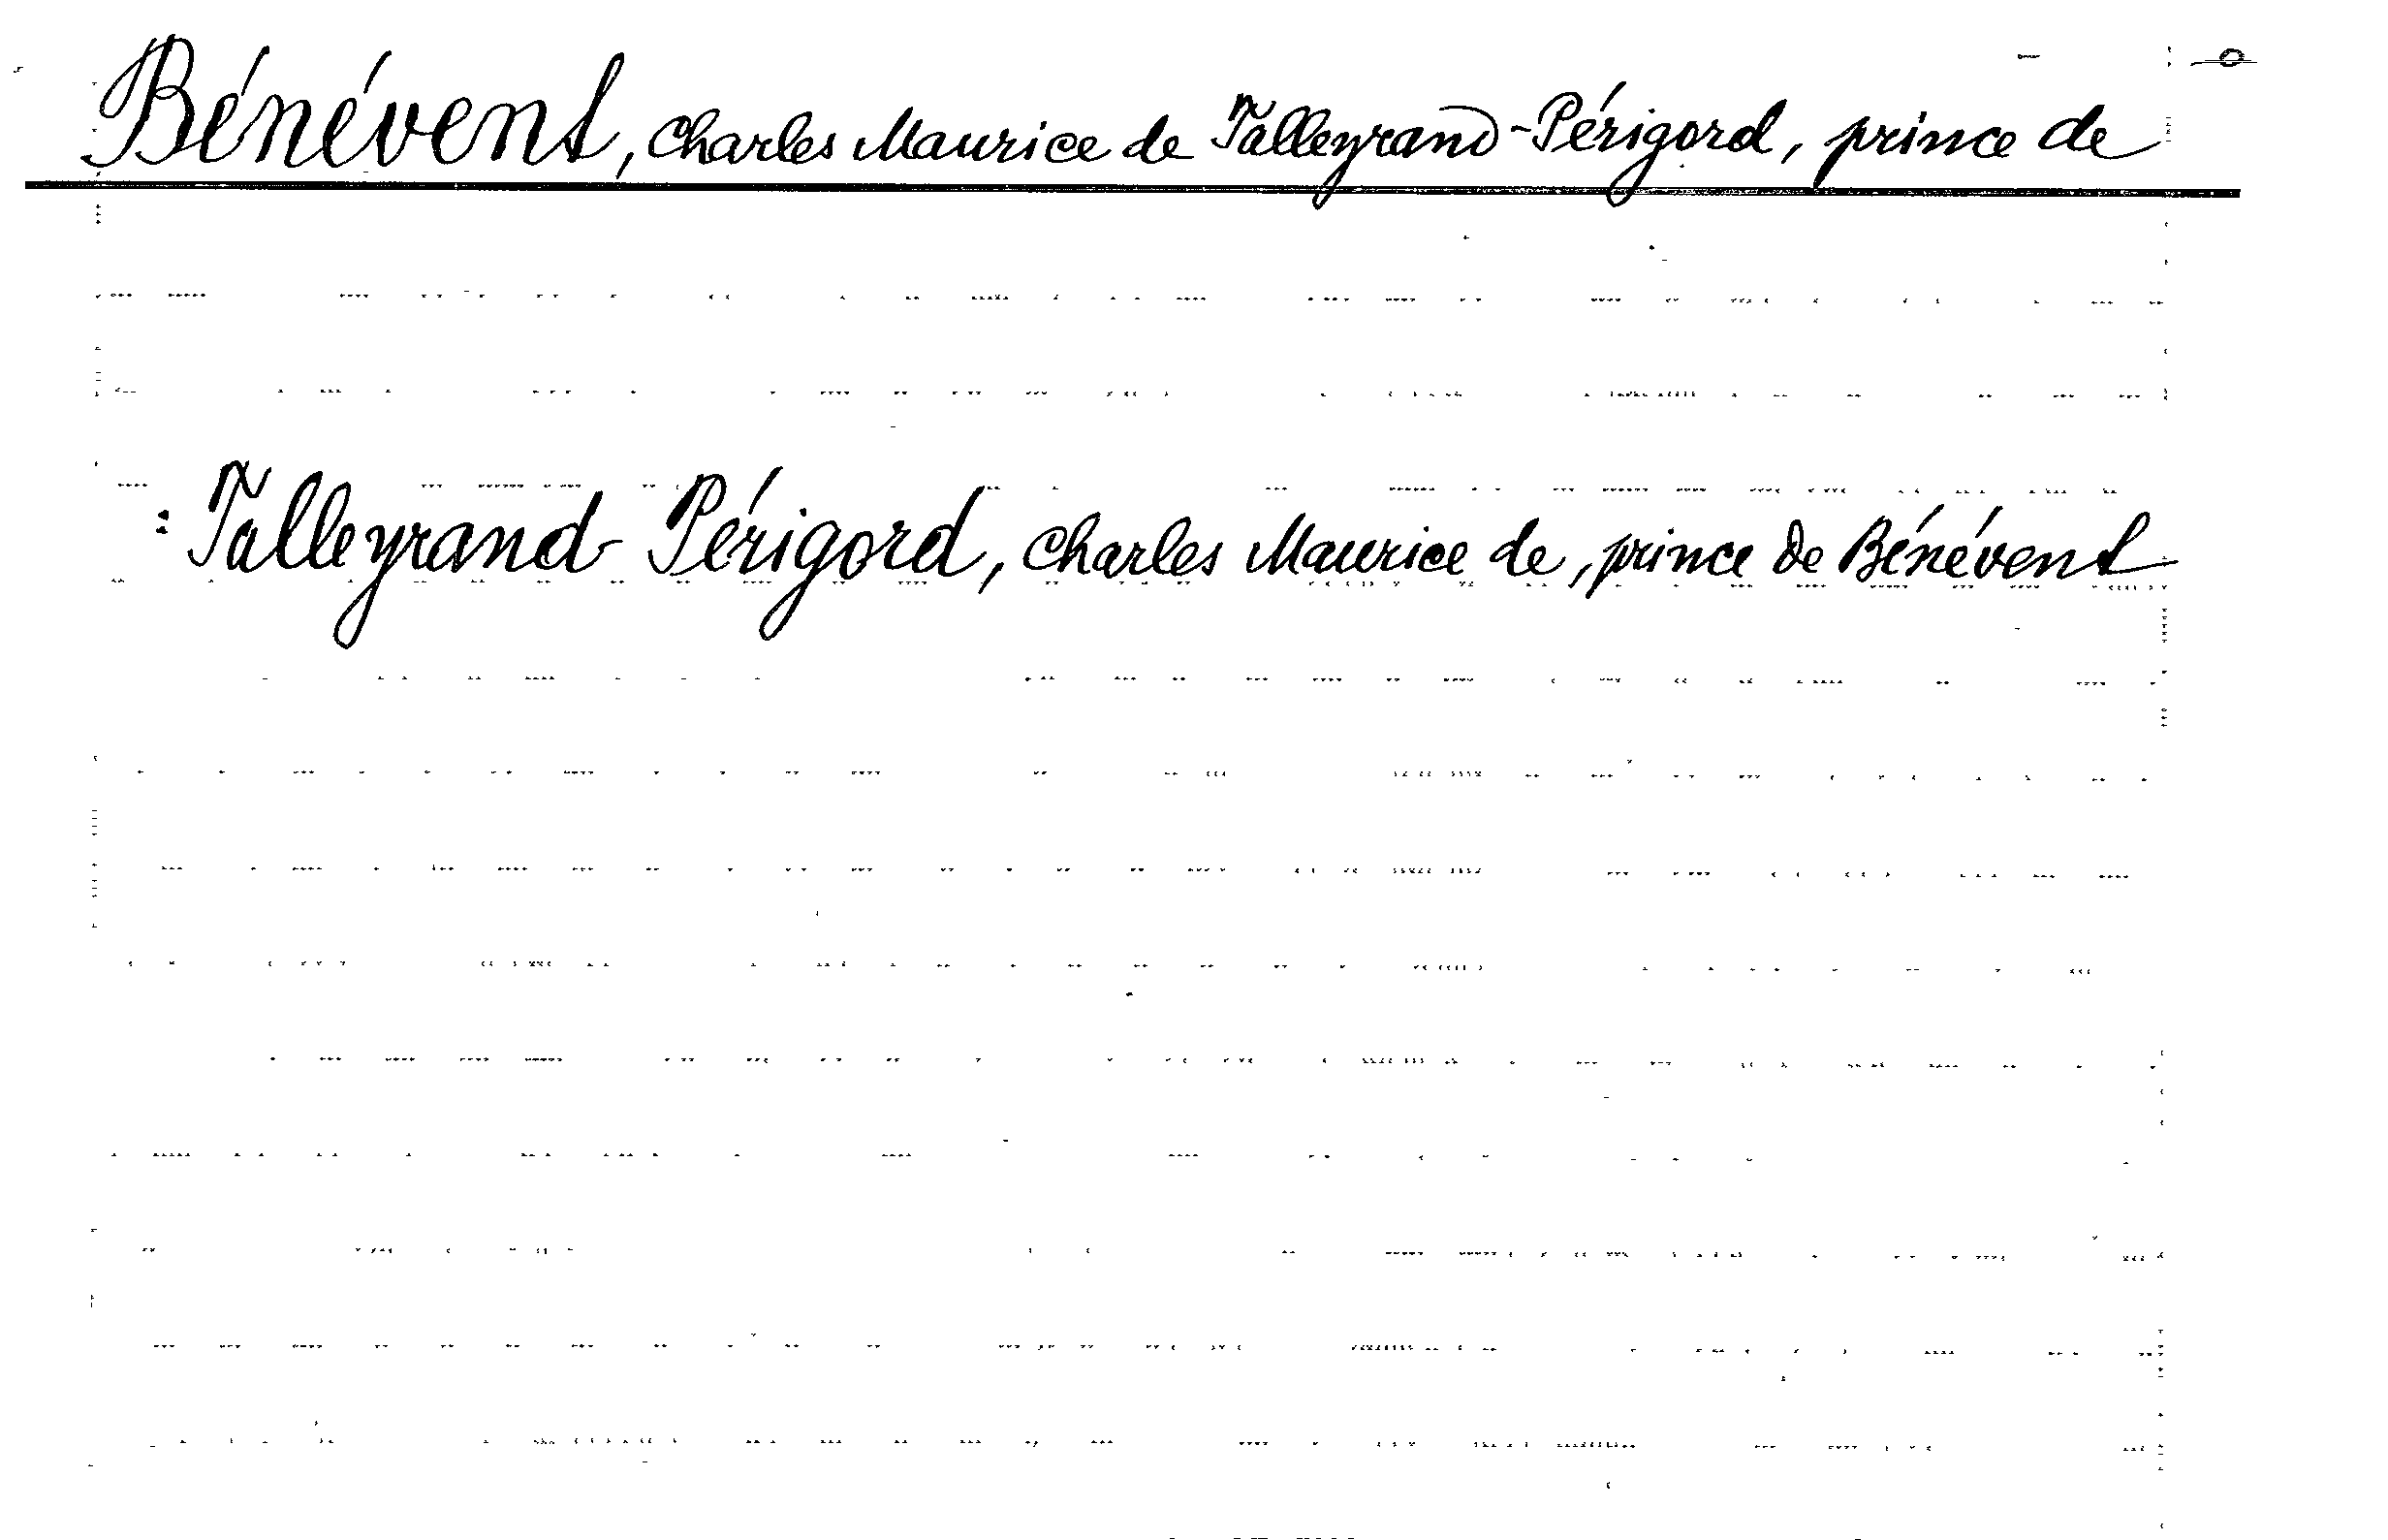 Bénévent, Charles Maurice de Talleyrand-Périgord, prince de
: Talleyrand-Périgord, Charles Maurice de, prince de Bénévent